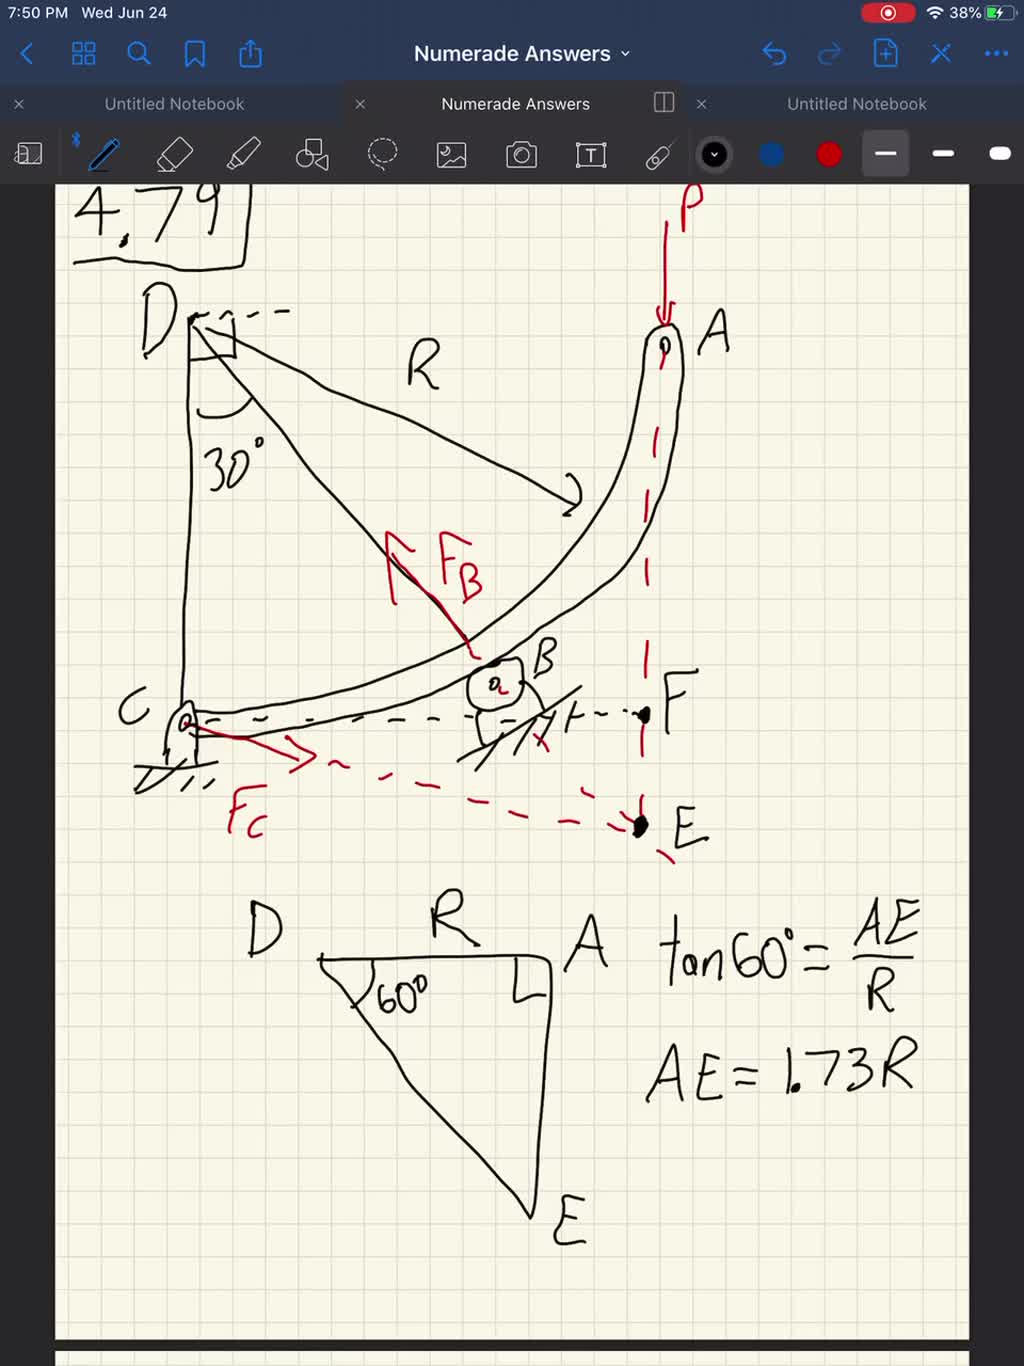 7:50 PM Wed Jun 24
38%
Numerade Answers
Untitled Notebook
Numerade Answers
Untitled Notebook
T
4.79
P
D
A
R
30°
F_B
B
C
F
F_C
E
D R A
tan60° = AE/R
60°
AE = 1.73R
E